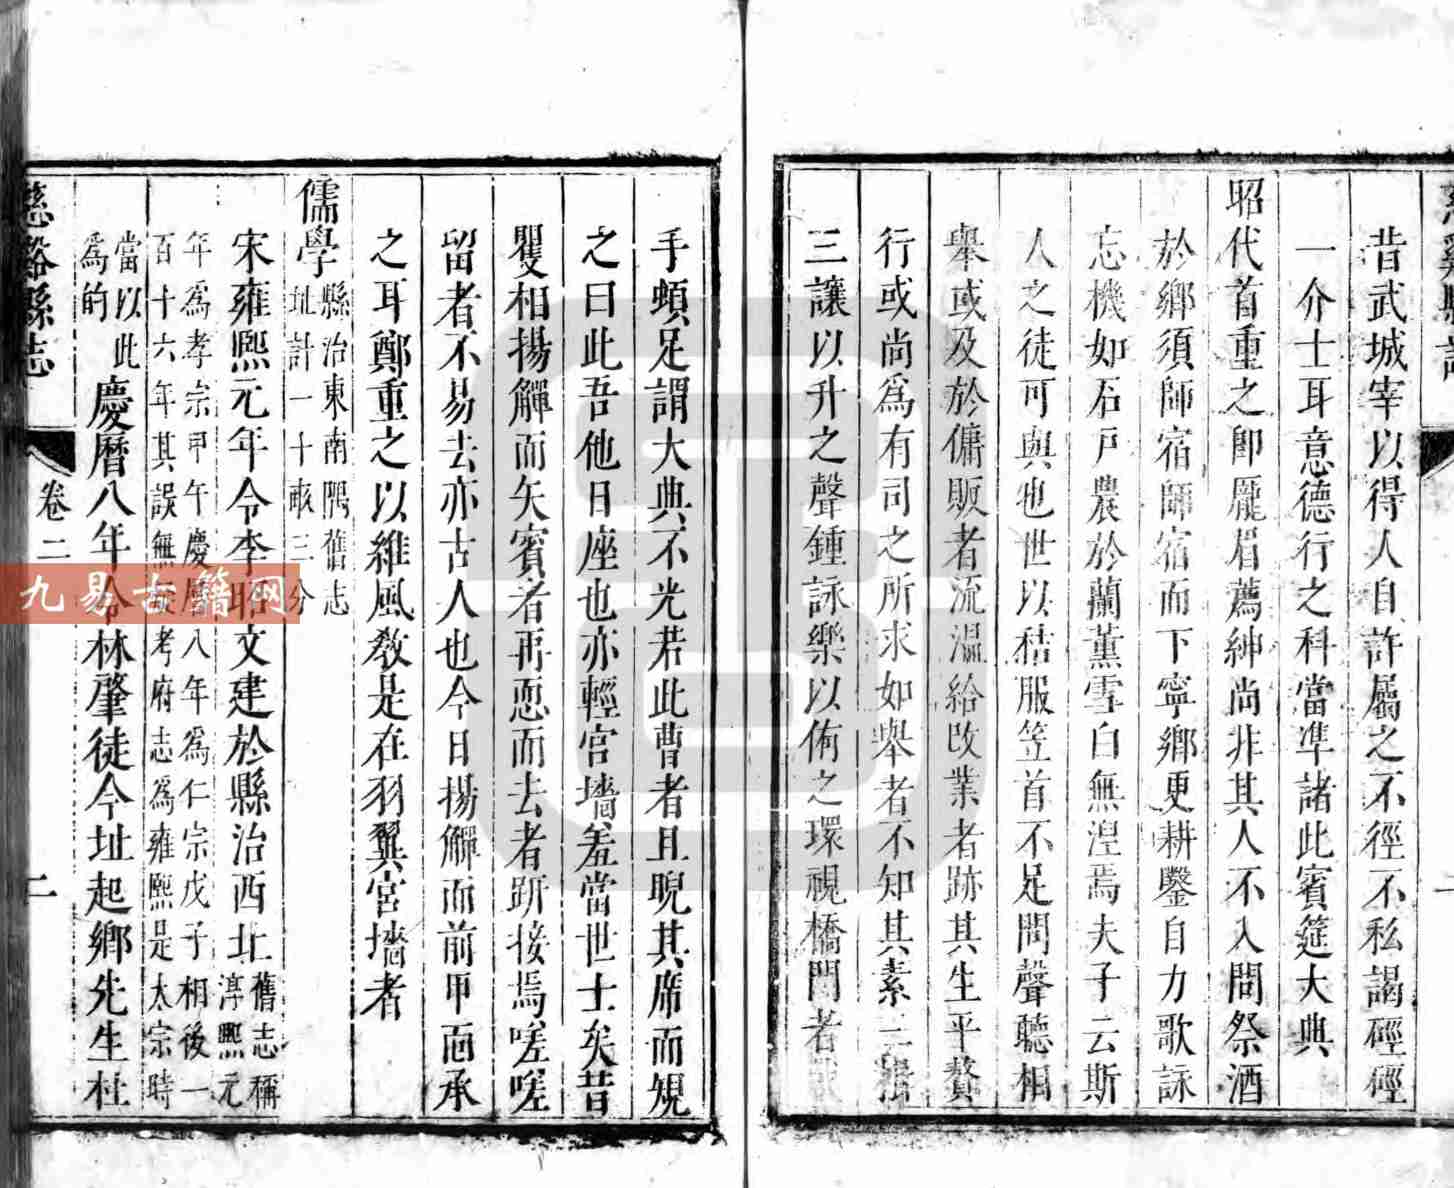 昔武城宰以得人自許屬之不徑不私謁硜硜
一介士耳意德行之科當準諸此賓筵大典
昭代首重之卽龎眉薦紳尚非其人不入問祭酒
於鄉須師宿師宿而下寧鄉更耕鑿自力歌詠
忘機如石戸農於蘭薰雪白無湼焉夫子云斯
人之徒可與也世以秸服笠首不足問聲聽相
舉或及於傭販者流温給改業者跡其生平贅
行或尚爲有司之所求如舉者不知其素三揖
三讓以升之聲鍾詠樂以侑之環視橋門者
手頓足謂大典不光若此曹者且睨其席而規
之曰此吾他日座也亦輕宫墻羞當世士矣昔
矍相揚觶而矢賓者再愿而去者趼接焉嗟嗟
留者不易去亦古人也今日揚觶而前甲而承
之耳鄭重之以維風敎是在羽翼宫墻者
儒學
縣治東南隅舊志
址計一十畝三分
宋雍熙元年令李昭文建於縣治西北
舊志稱
淳熙元
年爲孝宗甲午慶曆八年爲仁宗戊子相後一
百十六年其誤無疑考府志爲雍熙是太宗時
當以此
爲的
慶曆八年令林肇徒今址起鄉先生杜
慈谿縣志
卷二
二
九易古籍网